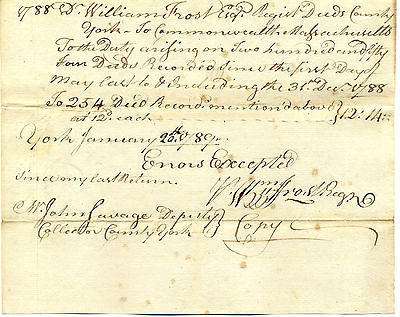 1788 Dr. William Frost Esqr. Registr. Deeds County
York - To Commonwealth Massachusetts
To the Duty arising on Two hundred and fifty
four Deeds Recorded since the first Day of
May last to & Including the 31st Decr. 1788
To 254 Deed Record mentiond above
at 12d each } 12:14:
York January 26th 1789
Errors Excepted
since my last Return.
Wm Frost Regr
Mr. John Savage Deputy
Collector County York }
Copy